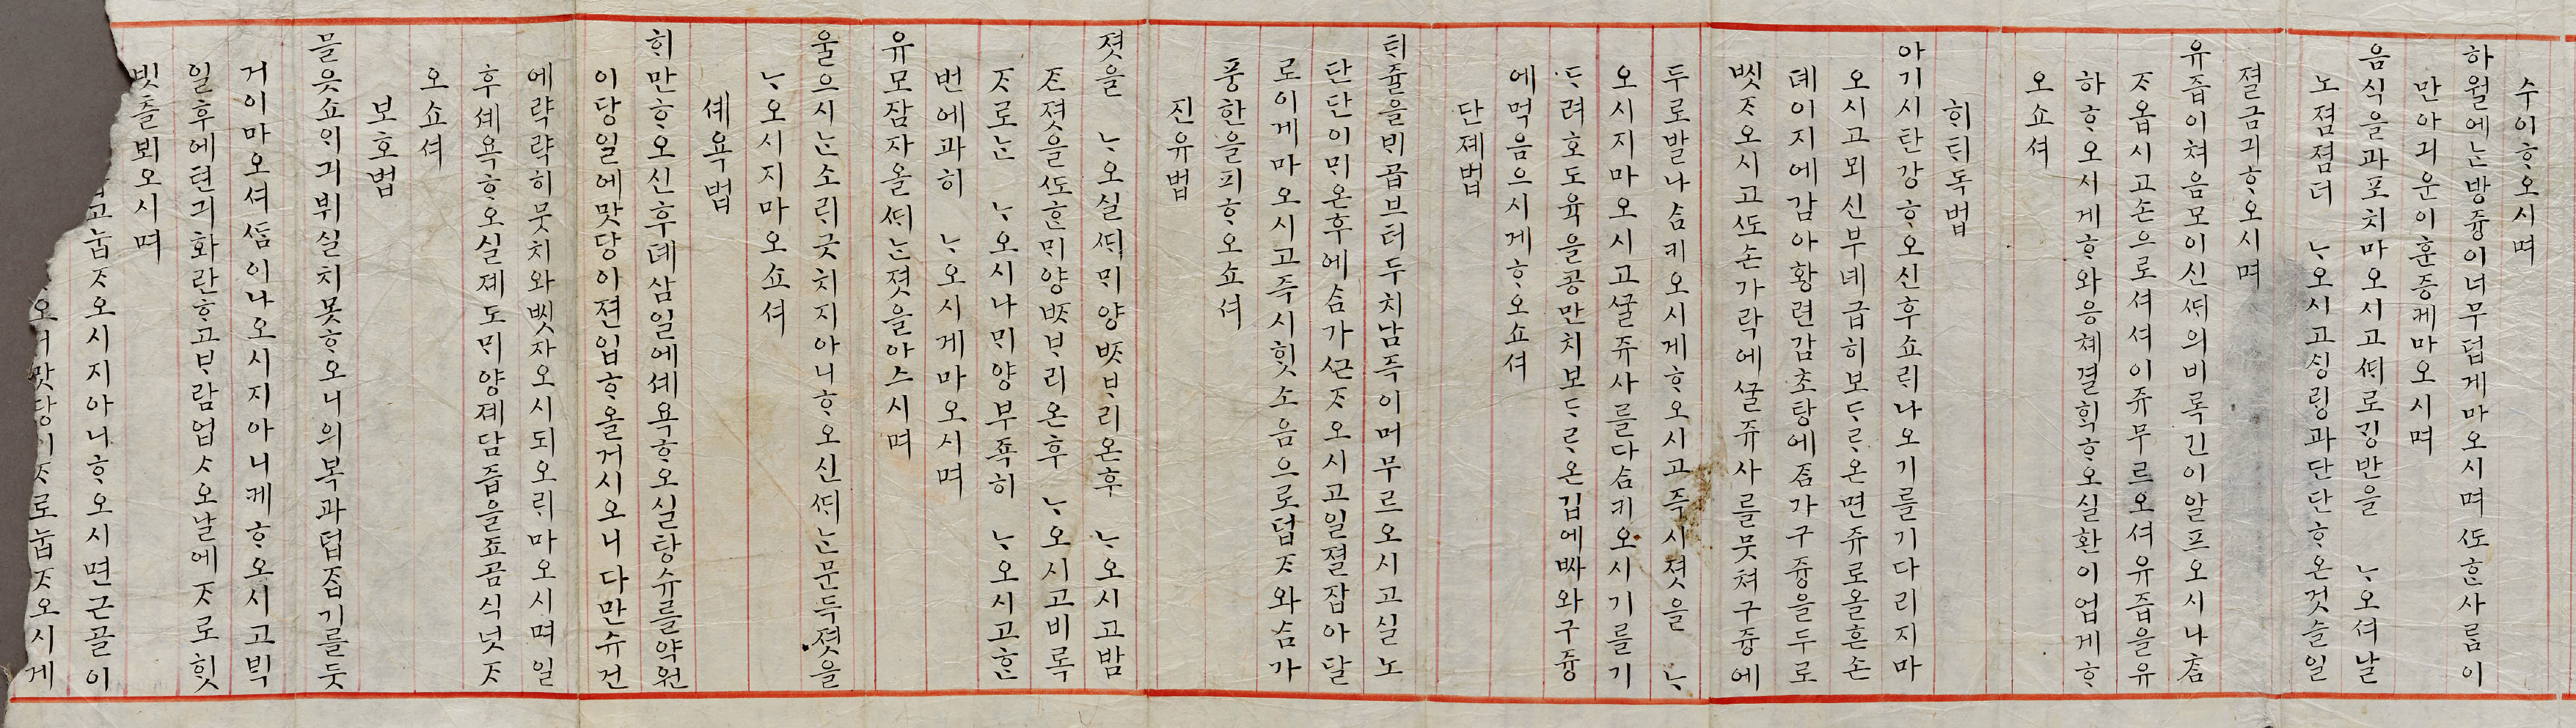 수이ᄒᆞ오시며
하월에ᄂᆞᆫ방즁이너무덥게마오시며ᄯᅩᄒᆞᆫ사ᄅᆞᆷ이
만아긔운이훈증케마오시며
음식을과포치마오시고ᄯᆡ로깅반을 ᄂᆞ오셔날
노졈졈더 ᄂᆞ오시고ᄉᆡᆼ링과단단ᄒᆞ온것슬일
졀금긔ᄒᆞ오시며
유즙이쳐음모이신ᄯᆡ의비록긴이알프오시나ᄎᆞᆷ
ᄌᆞ옵시고손으로셔셔이쥬무르오셔유즙을유
하ᄒᆞ오시게ᄒᆞ와응쳬결ᄒᆡᆨᄒᆞ오실환이업게ᄒᆞ
오쇼셔
ᄒᆡᄐᆡ독법
아기시탄강ᄒᆞ오신후쇼ᄅᆡ나오기를기다리지마
오시고뫼신부녜급히보ᄃᆞᄅᆞ온면쥬로올흔손
뎨이지에감아황련감초탕에ᄌᆞᆷ가구즁을두로
ᄡᅵᆺᄌᆞ오시고ᄯᅩ손가락에ᄭᅮᆯ쥬사를뭇쳐구즁에
두로발나ᄉᆞᆷ키오시게ᄒᆞ오시고즉시졋을 ᄂᆞ
오시지마오시고ᄭᅮᆯ쥬사를다ᄉᆞᆷ키오시기를기
ᄃᆞ려호도육을콩만치보ᄃᆞᄅᆞ온깁에ᄡᅡ와구즁
에먹음으시게ᄒᆞ오쇼셔
단졔법
ᄐᆡ쥴을ᄇᆡ곱브터두치남즉이머무르오시고실노
단단이ᄆᆡ온후에ᄉᆞᆷ가ᄭᅳᆫᄌᆞ오시고일졀잡아달
로이게마오시고즉시ᄒᆡᆺ소음으로덥ᄌᆞ와ᄉᆞᆷ가
풍한을피ᄒᆞ오쇼셔
진유법
졋을 ᄂᆞ오실ᄯᆡᄆᆡ양ᄧᆞᄇᆞ리온후 ᄂᆞ오시고밤
ᄌᆞᆫ졋을ᄯᅩᄒᆞᆫᄆᆡ양ᄧᆞᄇᆞ리온후 ᄂᆞ오시고비록
ᄌᆞ로ᄂᆞᆫ ᄂᆞ오시나ᄆᆡ양부죡히 ᄂᆞ오시고ᄒᆞᆫ
번에과히 ᄂᆞ오시게마오시며
유모잠자올ᄯᆡᄂᆞᆫ졋을아스시며
울으시ᄂᆞᆫ소ᄅᆡ긋치지아니ᄒᆞ오신ᄯᆡᄂᆞᆫ문득졋을
ᄂᆞ오시지마오쇼셔
셰욕법
ᄒᆡ만ᄒᆞ오신후뎨삼일에셰욕ᄒᆞ오실탕슈를약원
이당일에맛당이젼입ᄒᆞ올거시오니다만슈건
에략략히뭇치와ᄡᅵᆺ자오시되오ᄅᆡ마오시며일
후셰욕ᄒᆞ오실졔도ᄆᆡ양졔담즙을죠곰식넛ᄌᆞ
오쇼셔
보호법
믈읏쇼ᄋᆡ긔뷔실치못ᄒᆞ오니의복과덥ᄌᆞᆸ기를둣
거이마오셔ᄯᆞᆷ이나오시지아니케ᄒᆞ오시고ᄇᆡᆨ
일후에텬긔화란ᄒᆞ고ᄇᆞ람업ᄉᆞ오날에ᄌᆞ로ᄒᆡᆺ
빗츨뵈오시며
고눕ᄌᆞ오시지아니ᄒᆞ오시면근골이
맛당이ᄌᆞ로눕ᄌᆞ오시게